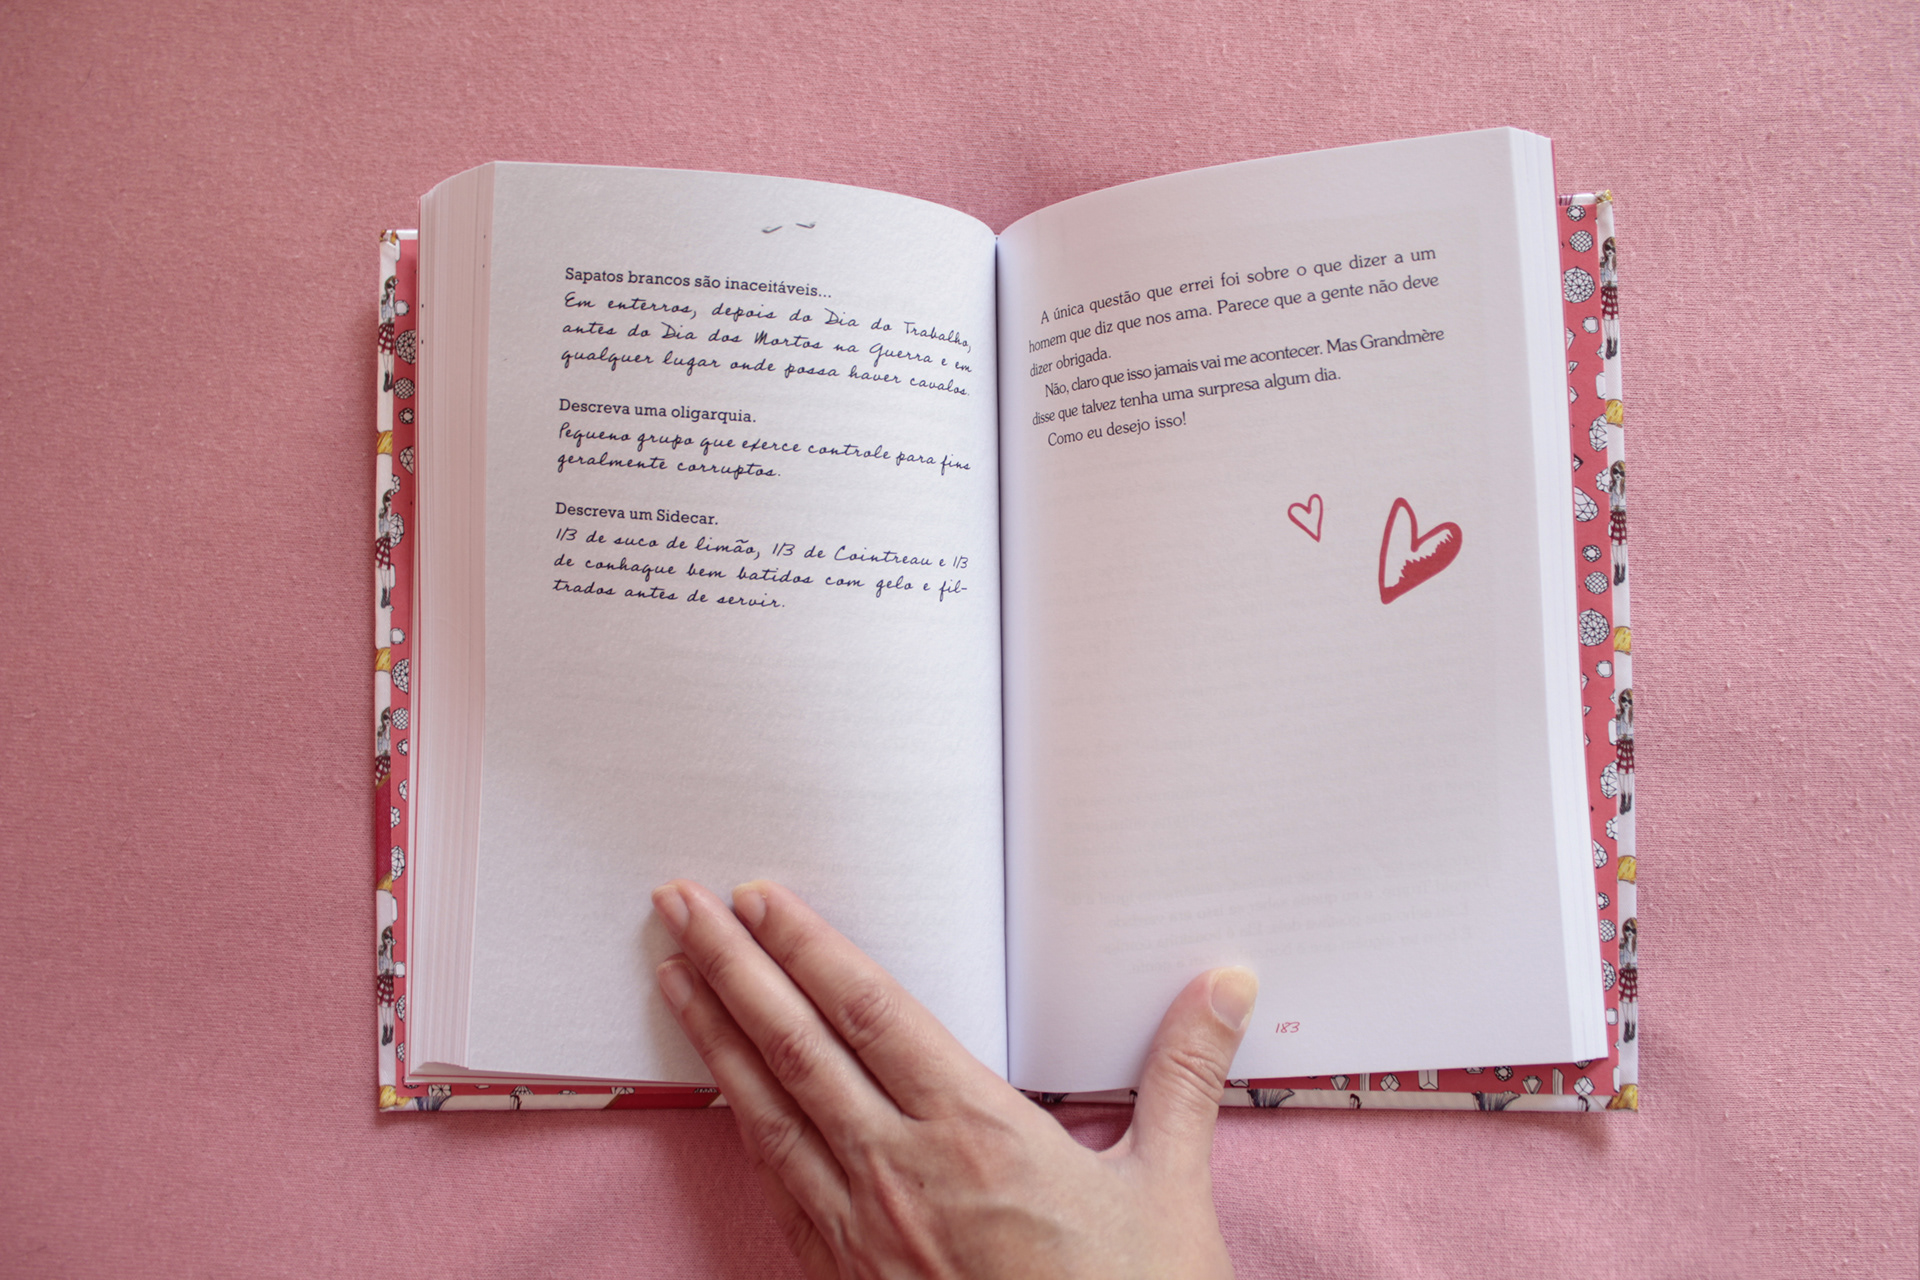 Sapatos brancos são inaceitáveis...
Em enterros, depois do Dia do Trabalho,
antes do Dia dos Mortos na Guerra e em
qualquer lugar onde possa haver cavalos.
Descreva uma oligarquia.
Pequeno grupo que exerce controle para fins
geralmente corruptos.
Descreva um Sidecar.
1/3 de suco de limão, 1/3 de Cointreau e 1/3
de conhaque bem batidos com gelo e fil-
trados antes de servir.
A única questão que errei foi sobre o que dizer a um
homem que diz que nos ama. Parece que a gente não deve
dizer obrigada.
Não, claro que isso jamais vai me acontecer. Mas Grandmère
disse que talvez tenha uma surpresa algum dia.
Como eu desejo isso!
183